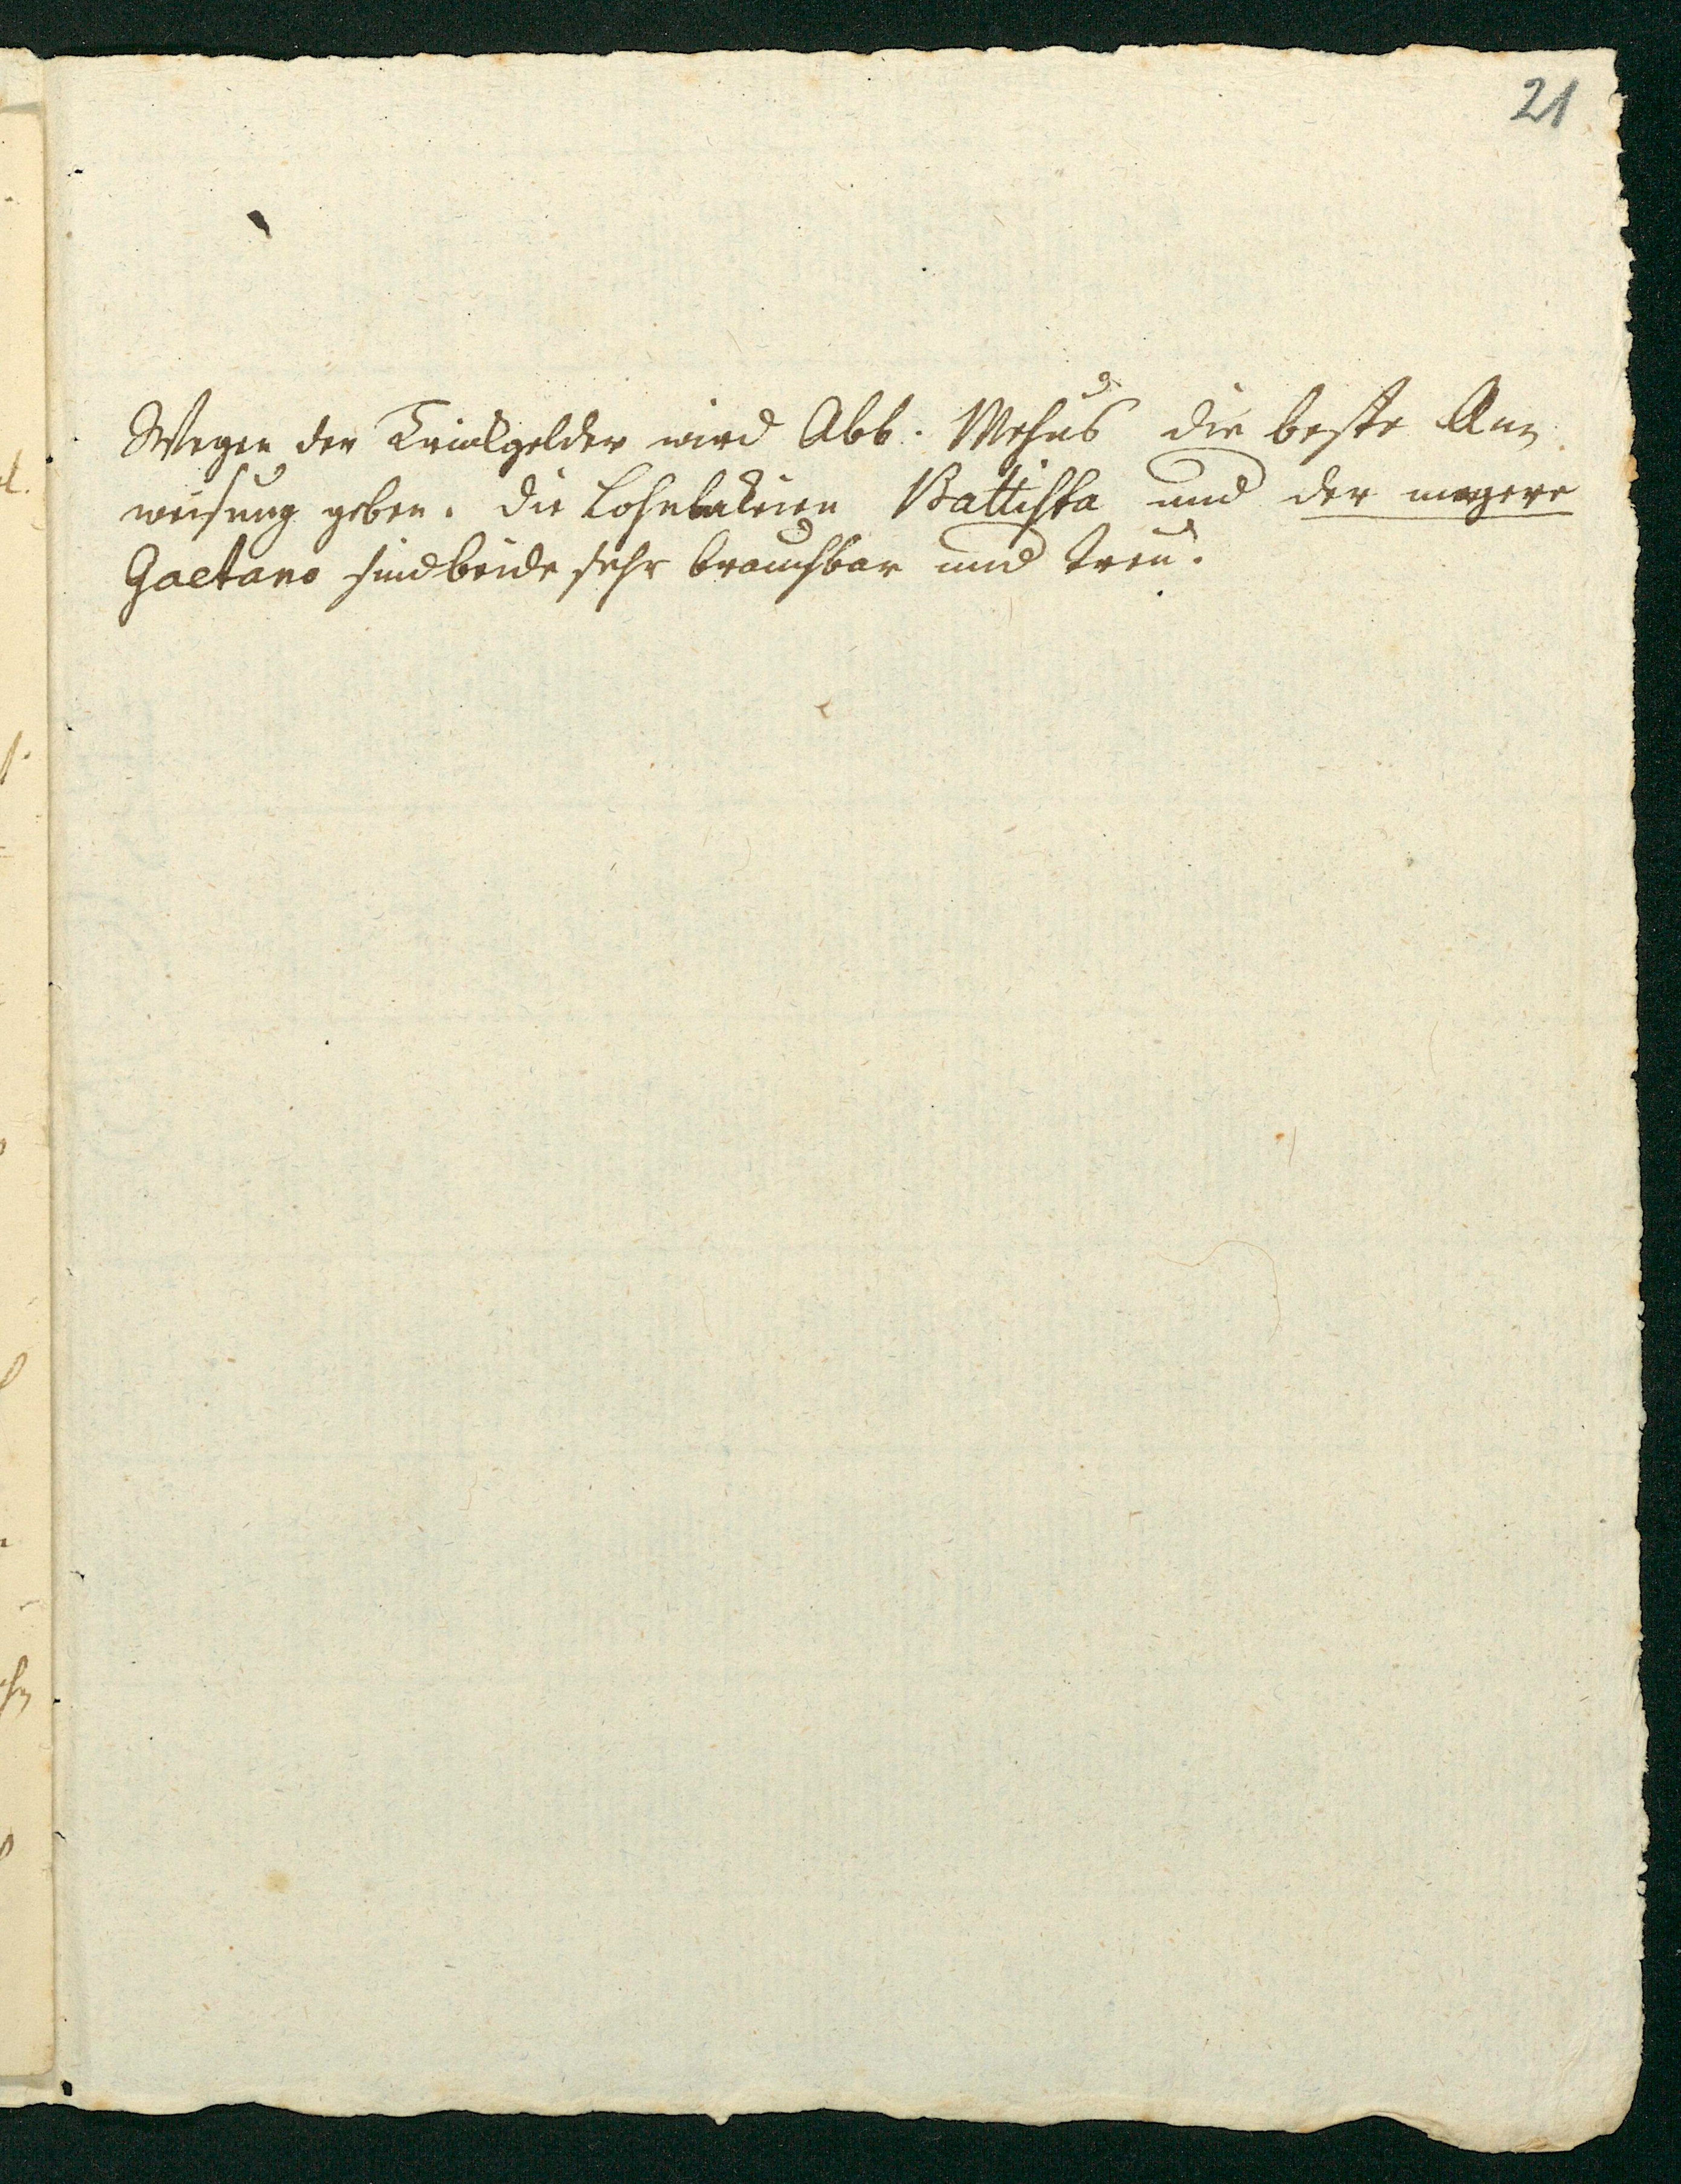 21
Wegen der Trinkgelder wird Abb. Mehus die beste An-
weisung geben. Die Lohnlakeien Battista und der magere
Gaetano sind beide sehr brauchbar und treu.